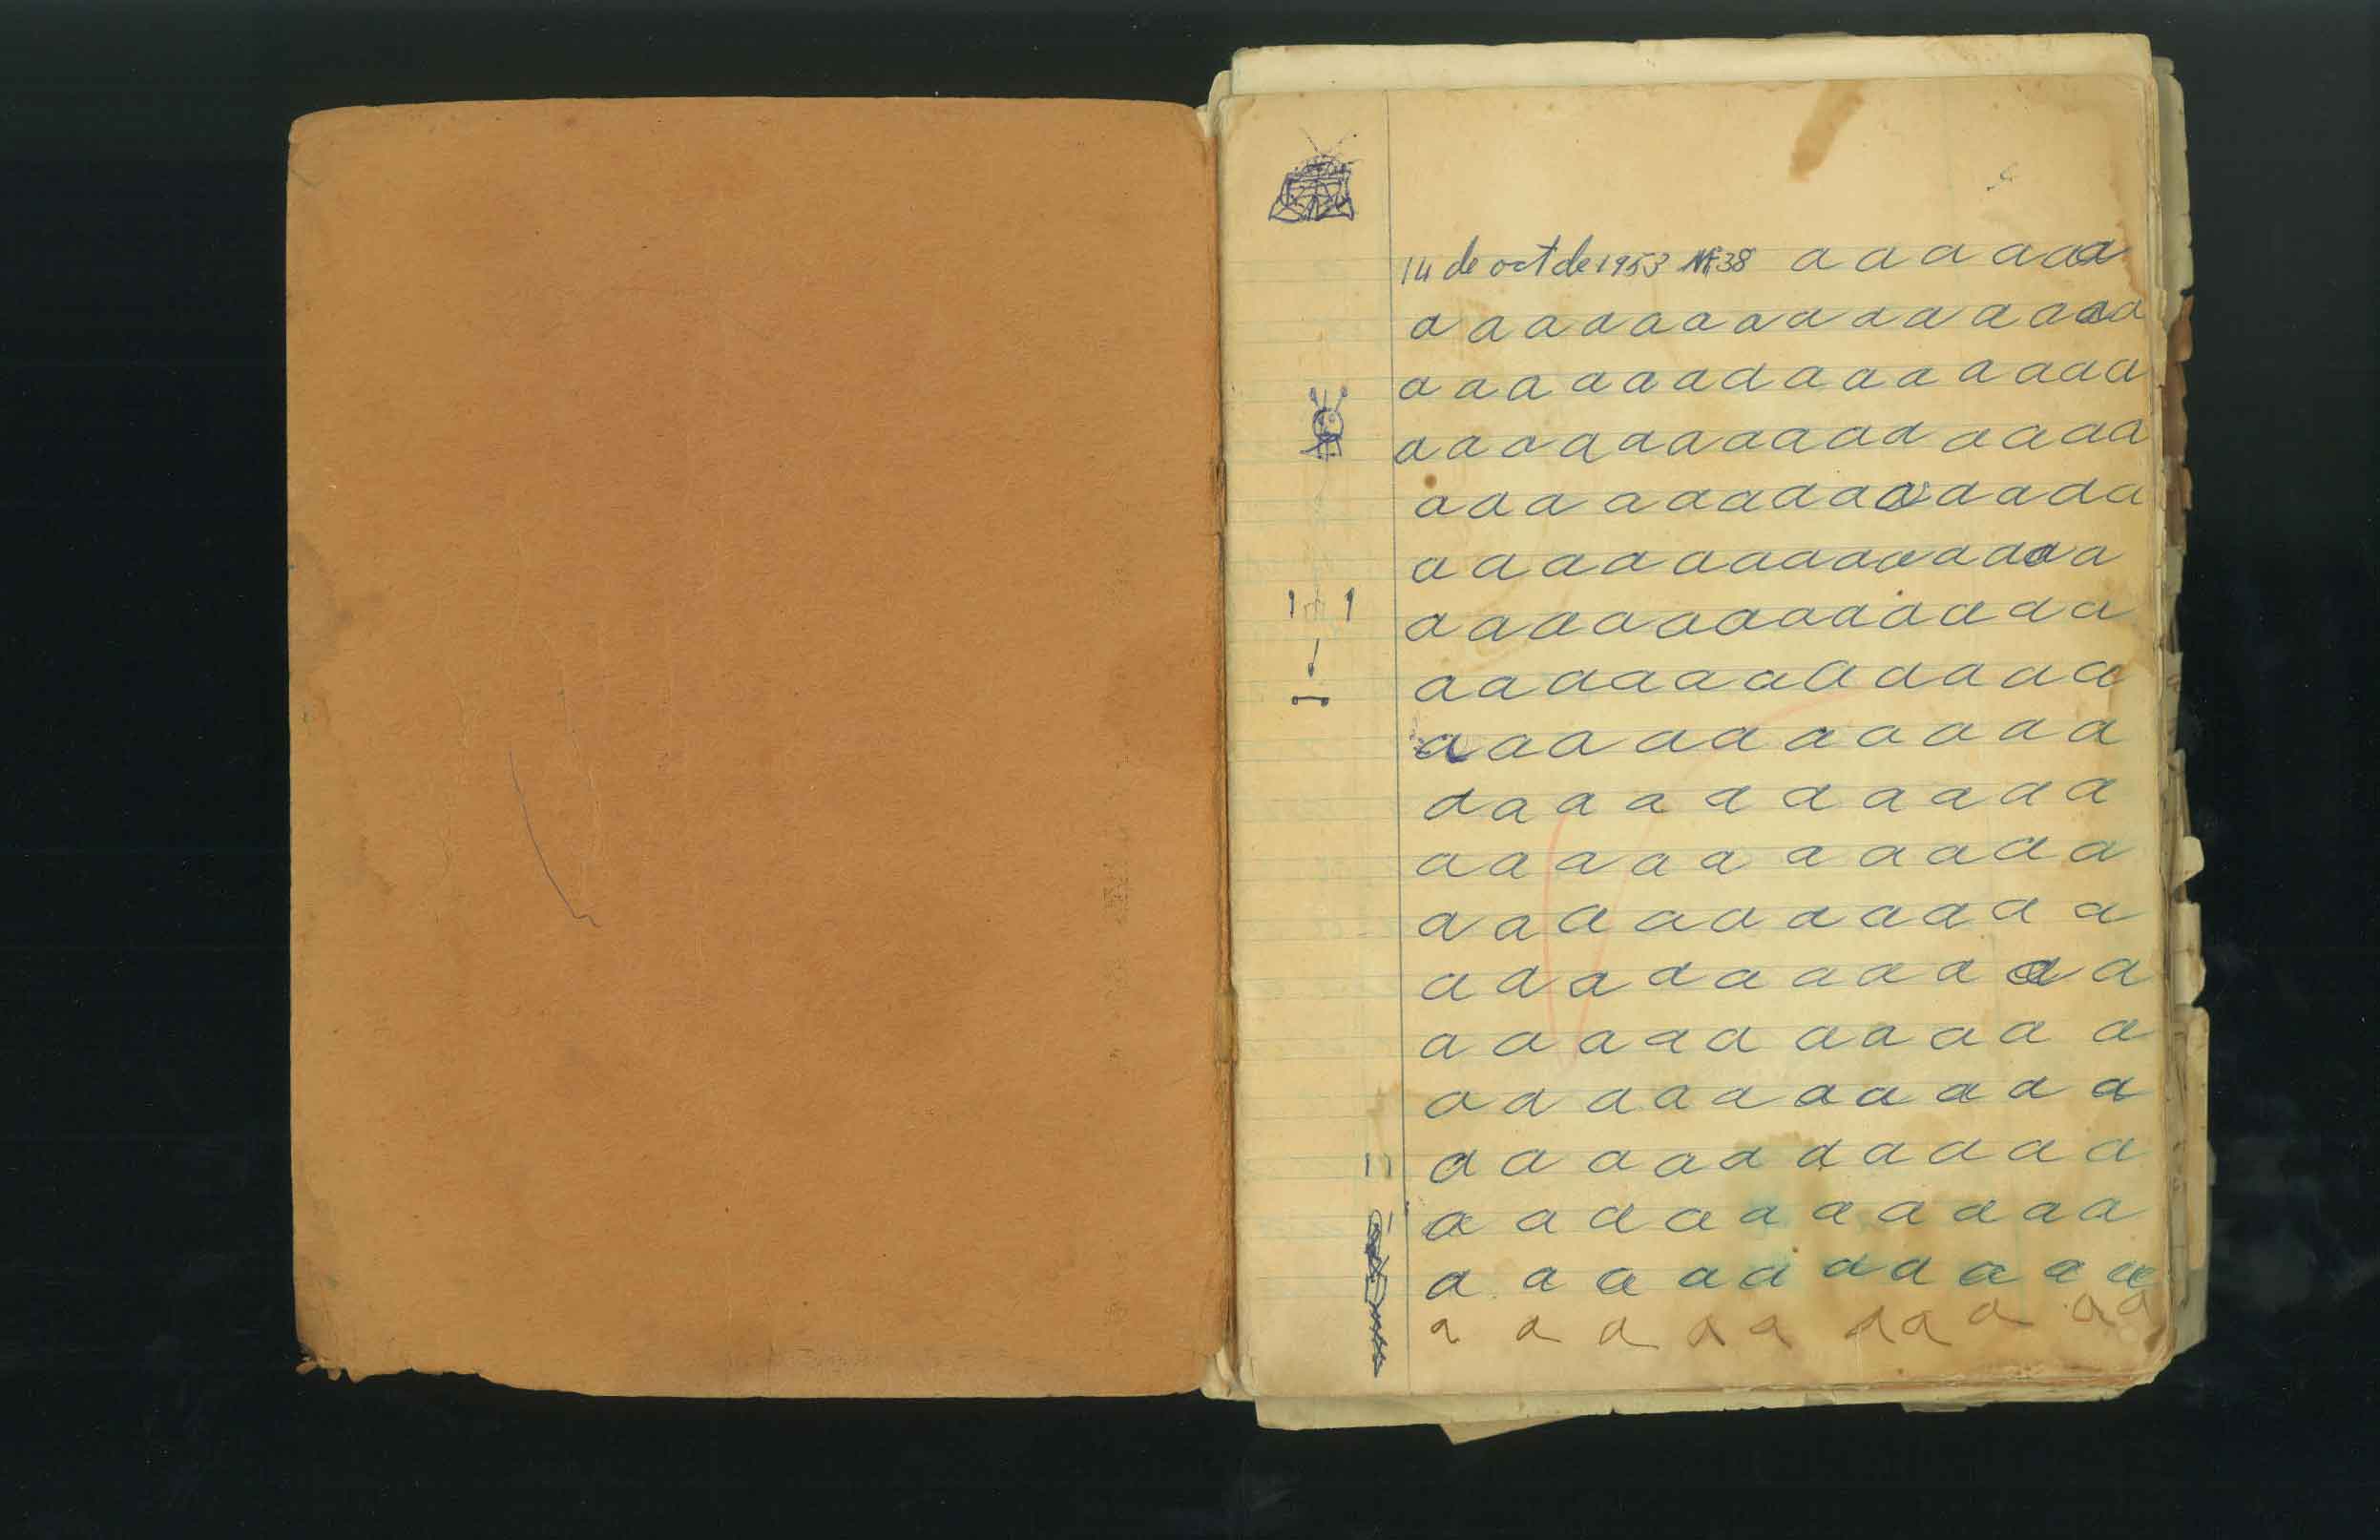 14 de oct de 1953 Nº 38 a a a a a a a
a a a a a a a a a a a a a a
a a a a a a a a a a a a a a
a a a a a a a a a a a a a a
a a a a a a a a a a a a a
a a a a a a a a a a a a a
a a a a a a a a a a a a
a a a a a a a a a a a a
a a a a a a a a a a
a a a a a a a a a a
a a a a a a a a a a
a a a a a a a a a a
a a a a a a a a a a
a a a a a a a a a a
a a a a a a a a a a
a a a a a a a a a a
a a a a a a a a a a
a a a a a a a a a a
a a a a a a a a a a